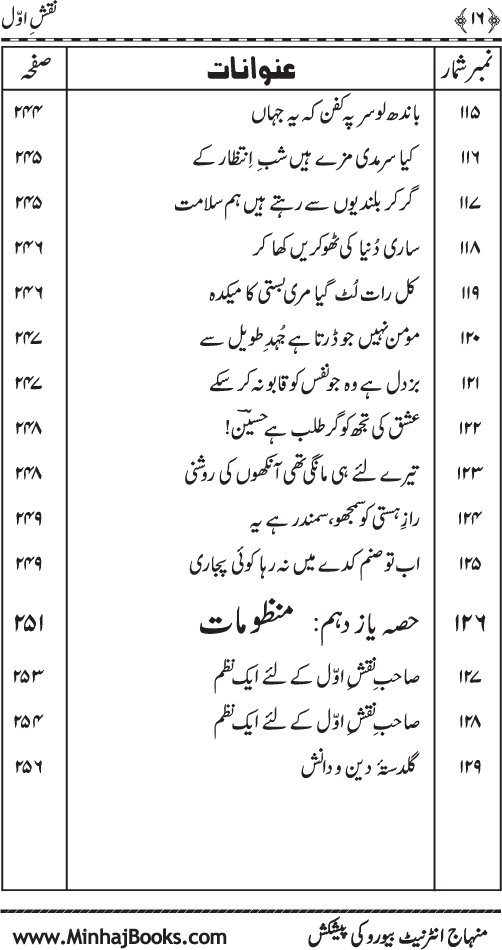 ﴿۱۶﴾ نقشِ اوّل
نمبر شمار عنوانات صفحہ
۱۱۵ باندھ لو سر پہ کفن کہ یہ جہاں ۲۴۴
۱۱۶ کیا سرمدی مزے ہیں شبِ اِنتظار کے ۲۴۵
۱۱۷ گر کر بلندیوں سے رہتے ہیں ہم سلامت ۲۴۵
۱۱۸ ساری دُنیا کی ٹھوکریں کھا کر ۲۴۶
۱۱۹ کل رات لُٹ گیا مری بستی کا میکدہ ۲۴۶
۱۲۰ مؤمن نہیں جو ڈرتا ہے جُہدِ طویل سے ۲۴۷
۱۲۱ بزدل ہے وہ جو نفس کو قابو نہ کر سکے ۲۴۷
۱۲۲ عشق کی تجھ کو گر طلب ہے حسینؔ! ۲۴۸
۱۲۳ تیرے لئے ہی مانگی تھی آنکھوں کی روشنی ۲۴۸
۱۲۴ رازِ ہستی کو سمجھو، سمندر ہے یہ ۲۴۹
۱۲۵ اب تو صنم کدے میں نہ رہا کوئی پجاری ۲۴۹
۱۲۶ حصہ یاز دہم: منظومات ۲۵۱
۱۲۷ صاحبِ نقشِ اوّل کے لئے ایک نظم ۲۵۳
۱۲۸ صاحبِ نقشِ اوّل کے لئے ایک نظم ۲۵۴
۱۲۹ گلدستۂ دین و دانش ۲۵۶
منہاج انٹرنیٹ بیورو کی پیشکش www.MinhajBooks.com